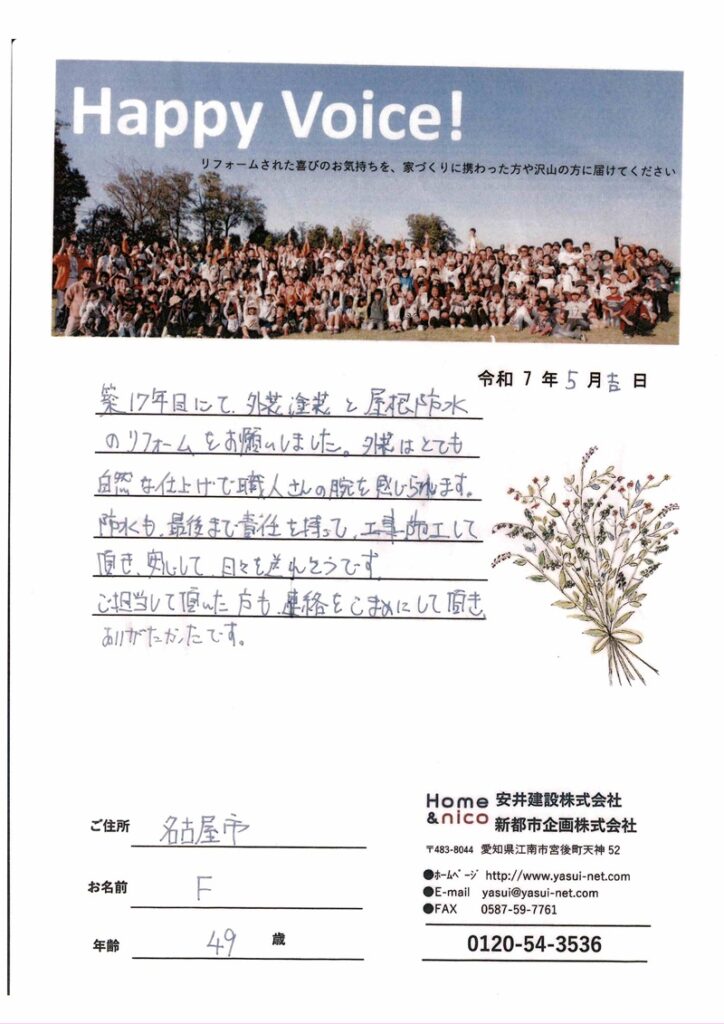 Happy Voice!
リフォームされた喜びのお気持ちを、家づくりに携わった方や沢山の方に届けてください
令和 7 年 5 月 吉 日
築17年目にて、外装塗装と屋根防水
のリフォームをお願いしました。外装はとても
自然な仕上げで職人さんの腕を感じられます。
防水も、最後まで責任を持って、工事施工して
頂き、安心して、日々を送れそうです。
ご担当して頂いた方も、連絡をこまめにして頂き、
ありがたかったです。
ご住所 名古屋市
お名前 F
年齢 49 歳
Home &nico
安井建設株式会社
新都市企画株式会社
〒483-8044 愛知県江南市宮後町天神 52
●ﾎｰﾑﾍﾟｰｼﾞ http://www.yasui-net.com
●E-mail yasui@yasui-net.com
●FAX 0587-59-7761
0120-54-3536